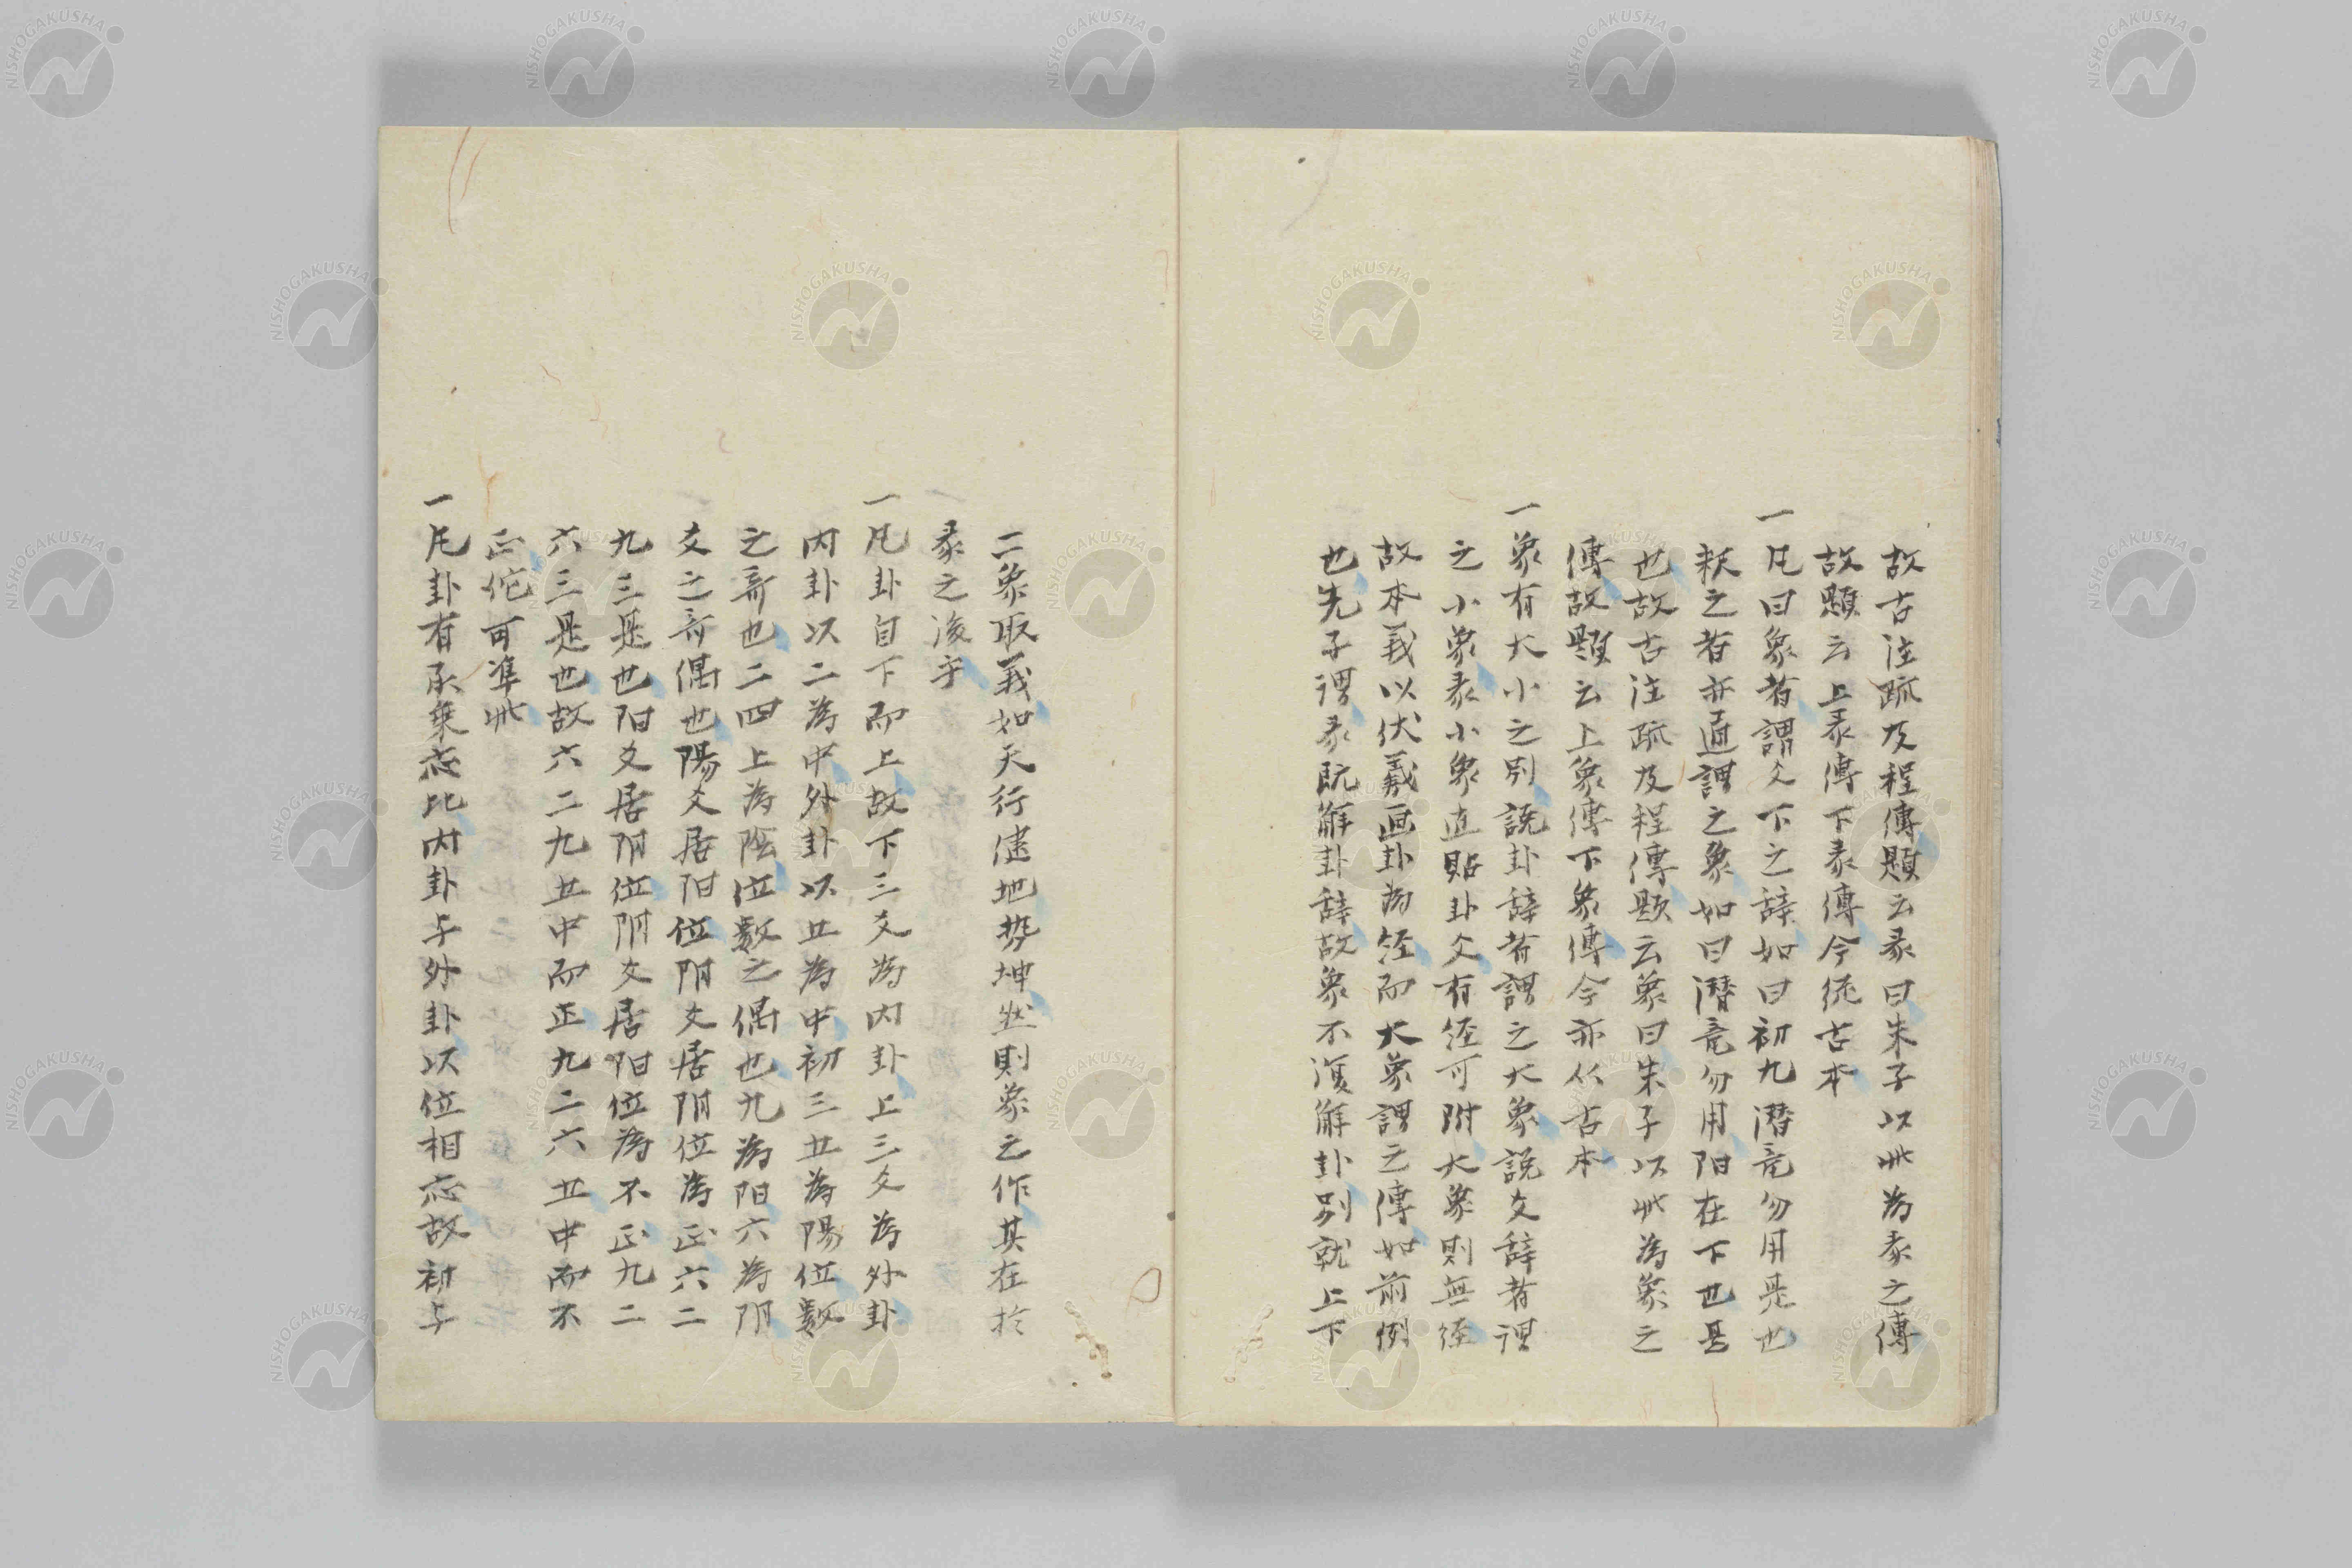 故古注疏及程傳題云彖曰朱子以此為彖之傳
故題云上彖傳下彖傳今従古本
一凡曰象者謂爻下之辞如曰初九潜竜勿用是也
釈之者亦通謂之象如曰潜竜勿用阳在下也是
也故古注疏及程傳題云象曰朱子以此為象之
傳故題云上象傳下象傳今亦从古本
一象有大小之別說卦辞者謂之大象說爻辞者謂
之小象彖小象直貼卦爻有经可附大象則無经
故本義以伏羲画卦為经而大象謂之傳如前例
也先子謂彖既解卦辞故象不復解卦別就上下
二象取義如天行健地势坤此則象之作其在於
彖之後乎
一凡卦自下而上故下三爻為内卦上三爻為外卦
内卦以二為中外卦以五為中初三五為陽位數
之竒也二四上為陰位數之偶也九為阳六為阴
爻之竒偶也陽爻居阳位阴爻居阴位為正六二
九三是也阳爻居阴位阴爻居阳位為不正九二
六三是也故六二九五中而正九二六五中而不
正佗可準此
一凡卦有承乗応比内卦与外卦以位相応故初与
NISHOGAKUSHA